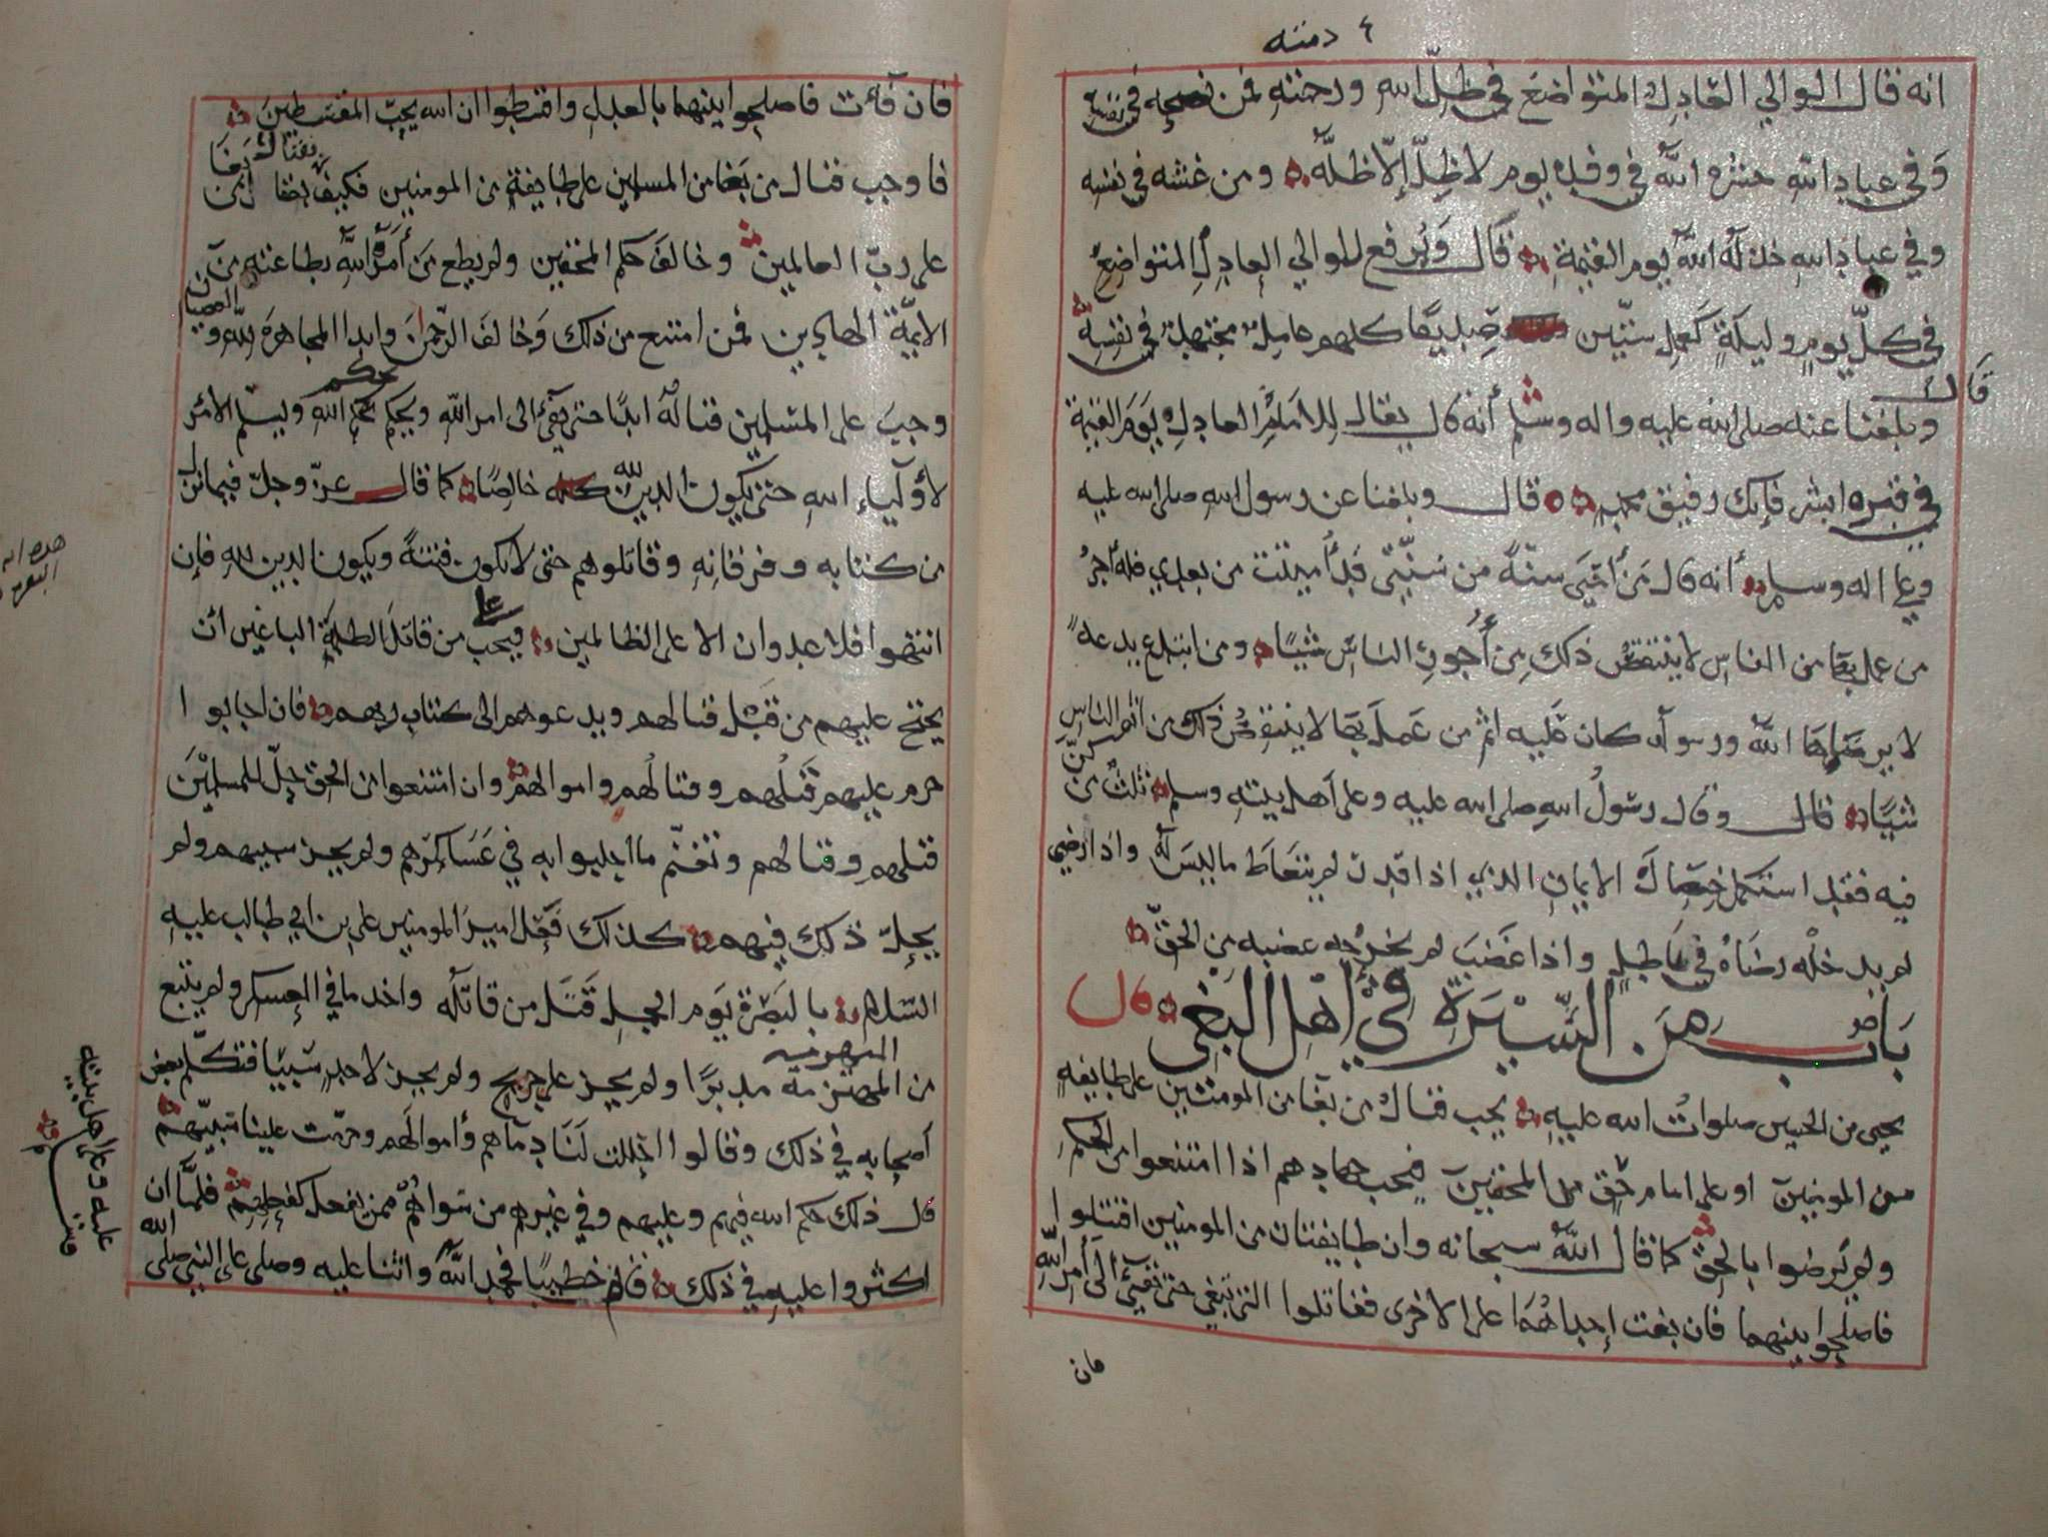 ٤ دمته
انه قال الوالي العادل المتواضع في ظل الله ورحمته فمن نصحه في نفسه
وفي عباد الله حشره الله في وفده يوم لا ظل إلا ظله ومن غشه في نفسه
وفي عباد الله خذله الله يوم القيمة قال ويرفع للوالي العادل المتواضع
في كل يوم وليلة كعمل ستين صديقا كلهم عامل مجتهد في نفسه
قال
وبلغنا عنه صلى الله عليه واله وسلم أنه قال يقال للامام العادل يوم القيمة
في قبره ابشر فإنك رفيق محمد قال وبلغنا عن رسول الله صلى الله عليه
وعلى اله وسلم أنه قال من أحيى سنة من سنتي قد أميتت من بعدي فله أجر
من عمل بها من الناس لا ينتقص ذلك من أجور الناس شيئا ومن ابتدع بدعة
لا يرضاها الله ورسوله كان عليه اثم من عمل بها لا ينتقص ذلك من اثم الناس
شيئا قال وقال رسول الله صلى الله عليه وعلى أهل بيته وسلم ثلث من كن
فيه فقد استكمل خصال الايمان الذي اذا قدر لم يتعاط ما ليس له واذا رضي
لم يدخله رضاه في باطل واذا غضب لم يخرجه غضبه من الحق
باب من السيرة في أهل البغي قال
يحيى بن الحسين صلوات الله عليه يجب قتال من بغا من المومنين على طايفة
من المومنين او على امام حق من المحقين فيجب جهادهم اذا امتنعوا من الحكم
ولم يرضوا بالحق كما قال الله سبحانه وان طايفتان من المومنين اقتتلوا
فاصلحوا بينهما فان بغت إحداهما على الاخرى فقاتلوا التي تبغي حتى تفيء الى أمر الله
فان
فان فآءت فاصلحوا بينهما بالعدل واقسطوا ان الله يحب المقسطين
فاوجب قتال من بغا من المسلمين على طايفة من المومنين فكيف بقتال من بغا
على رب العالمين وخالف حكم المحقين ولم يطع من أمره الله بطاعته من
الايمة الهادين فمن امتنع من ذلك وخالف الرحمن وابدا المجاهرة لله والعصيان
وجب على المسلمين قتاله ابدا حتى يفيء الى امر الله ويحكم بحكم الله ويسلم الامر
لأوليآء الله حتى يكون الدين كله لله خالصا كما قال عز وجل فيما نزل
من كتابه وفرقانه وقاتلوهم حتى لا تكون فتنة ويكون الدين لله فإن
هذه اية البقرة
انتهوا فلا عدوان الا على الظالمين فيجب على من قاتل الظلمة الباغين ان
يحتج عليهم من قبل قتالهم ويدعوهم الى كتاب ربهم فان اجابوا
حرم عليهم قتلهم وقتالهم واموالهم وان امتنعوا من الحق حل للمسلمين
قتلهم وقتالهم وتغنم ما اجلبوا به في عساكرهم ولم يجز سبيهم ولم
يحل ذلك فيهم كذلك فعل امير المومنين علي بن ابي طالب عليه
السلام بالبصرة يوم الجمل قتل من قاتله واخذ ما في العسكر ولم يتبع
من المنهزمة مدبرا ولم يجز على جريح ولم يجز لاحد سبيا فتكلم بعض
أصحابه في ذلك وقالوا احللت لنا دمآهم وأموالهم وحرمت علينا سبيهم
قال ذلك حكم الله فيهم وعليهم وفي غيرهم من سواهم ممن يفعل كفعلهم فلما ان
اكثروا عليه في ذلك قام خطيبا فحمد الله واثنا عليه وصلى على النبي صلى الله
عليه وعلى اهل بيته
وسلم